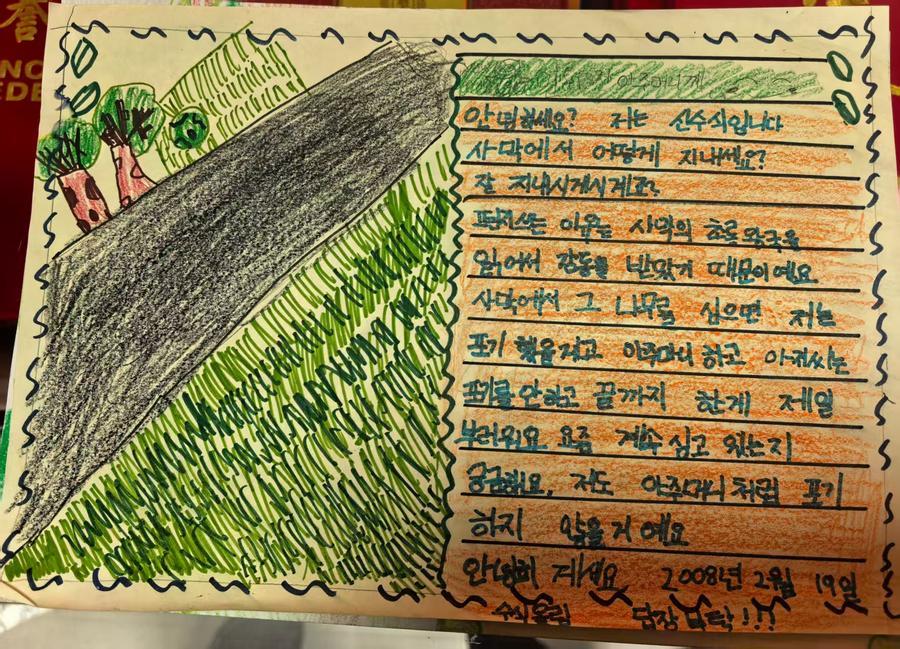 아주머니께
안녕하세요? 저는 선수식입니다
사막에서 어떻게 지내세요?
잘 지내시게시게죠?
편지쓰는 이유는 사막의 초록
읽어서 감동를 받았기 때문이예요
사막에서 그 나무를 심으면 저는
포기 했을거고 아주머니 하고 아저씨는
포기를 안하고 끝까지 한게 제일
부러워요 요즘 계속 심고 있는지
궁금해요, 저도 아주머니 처럼 포기
하지 않을 거 예요
안녕히 계세요 2008년 2월 19일
수식올림 답장 !!!